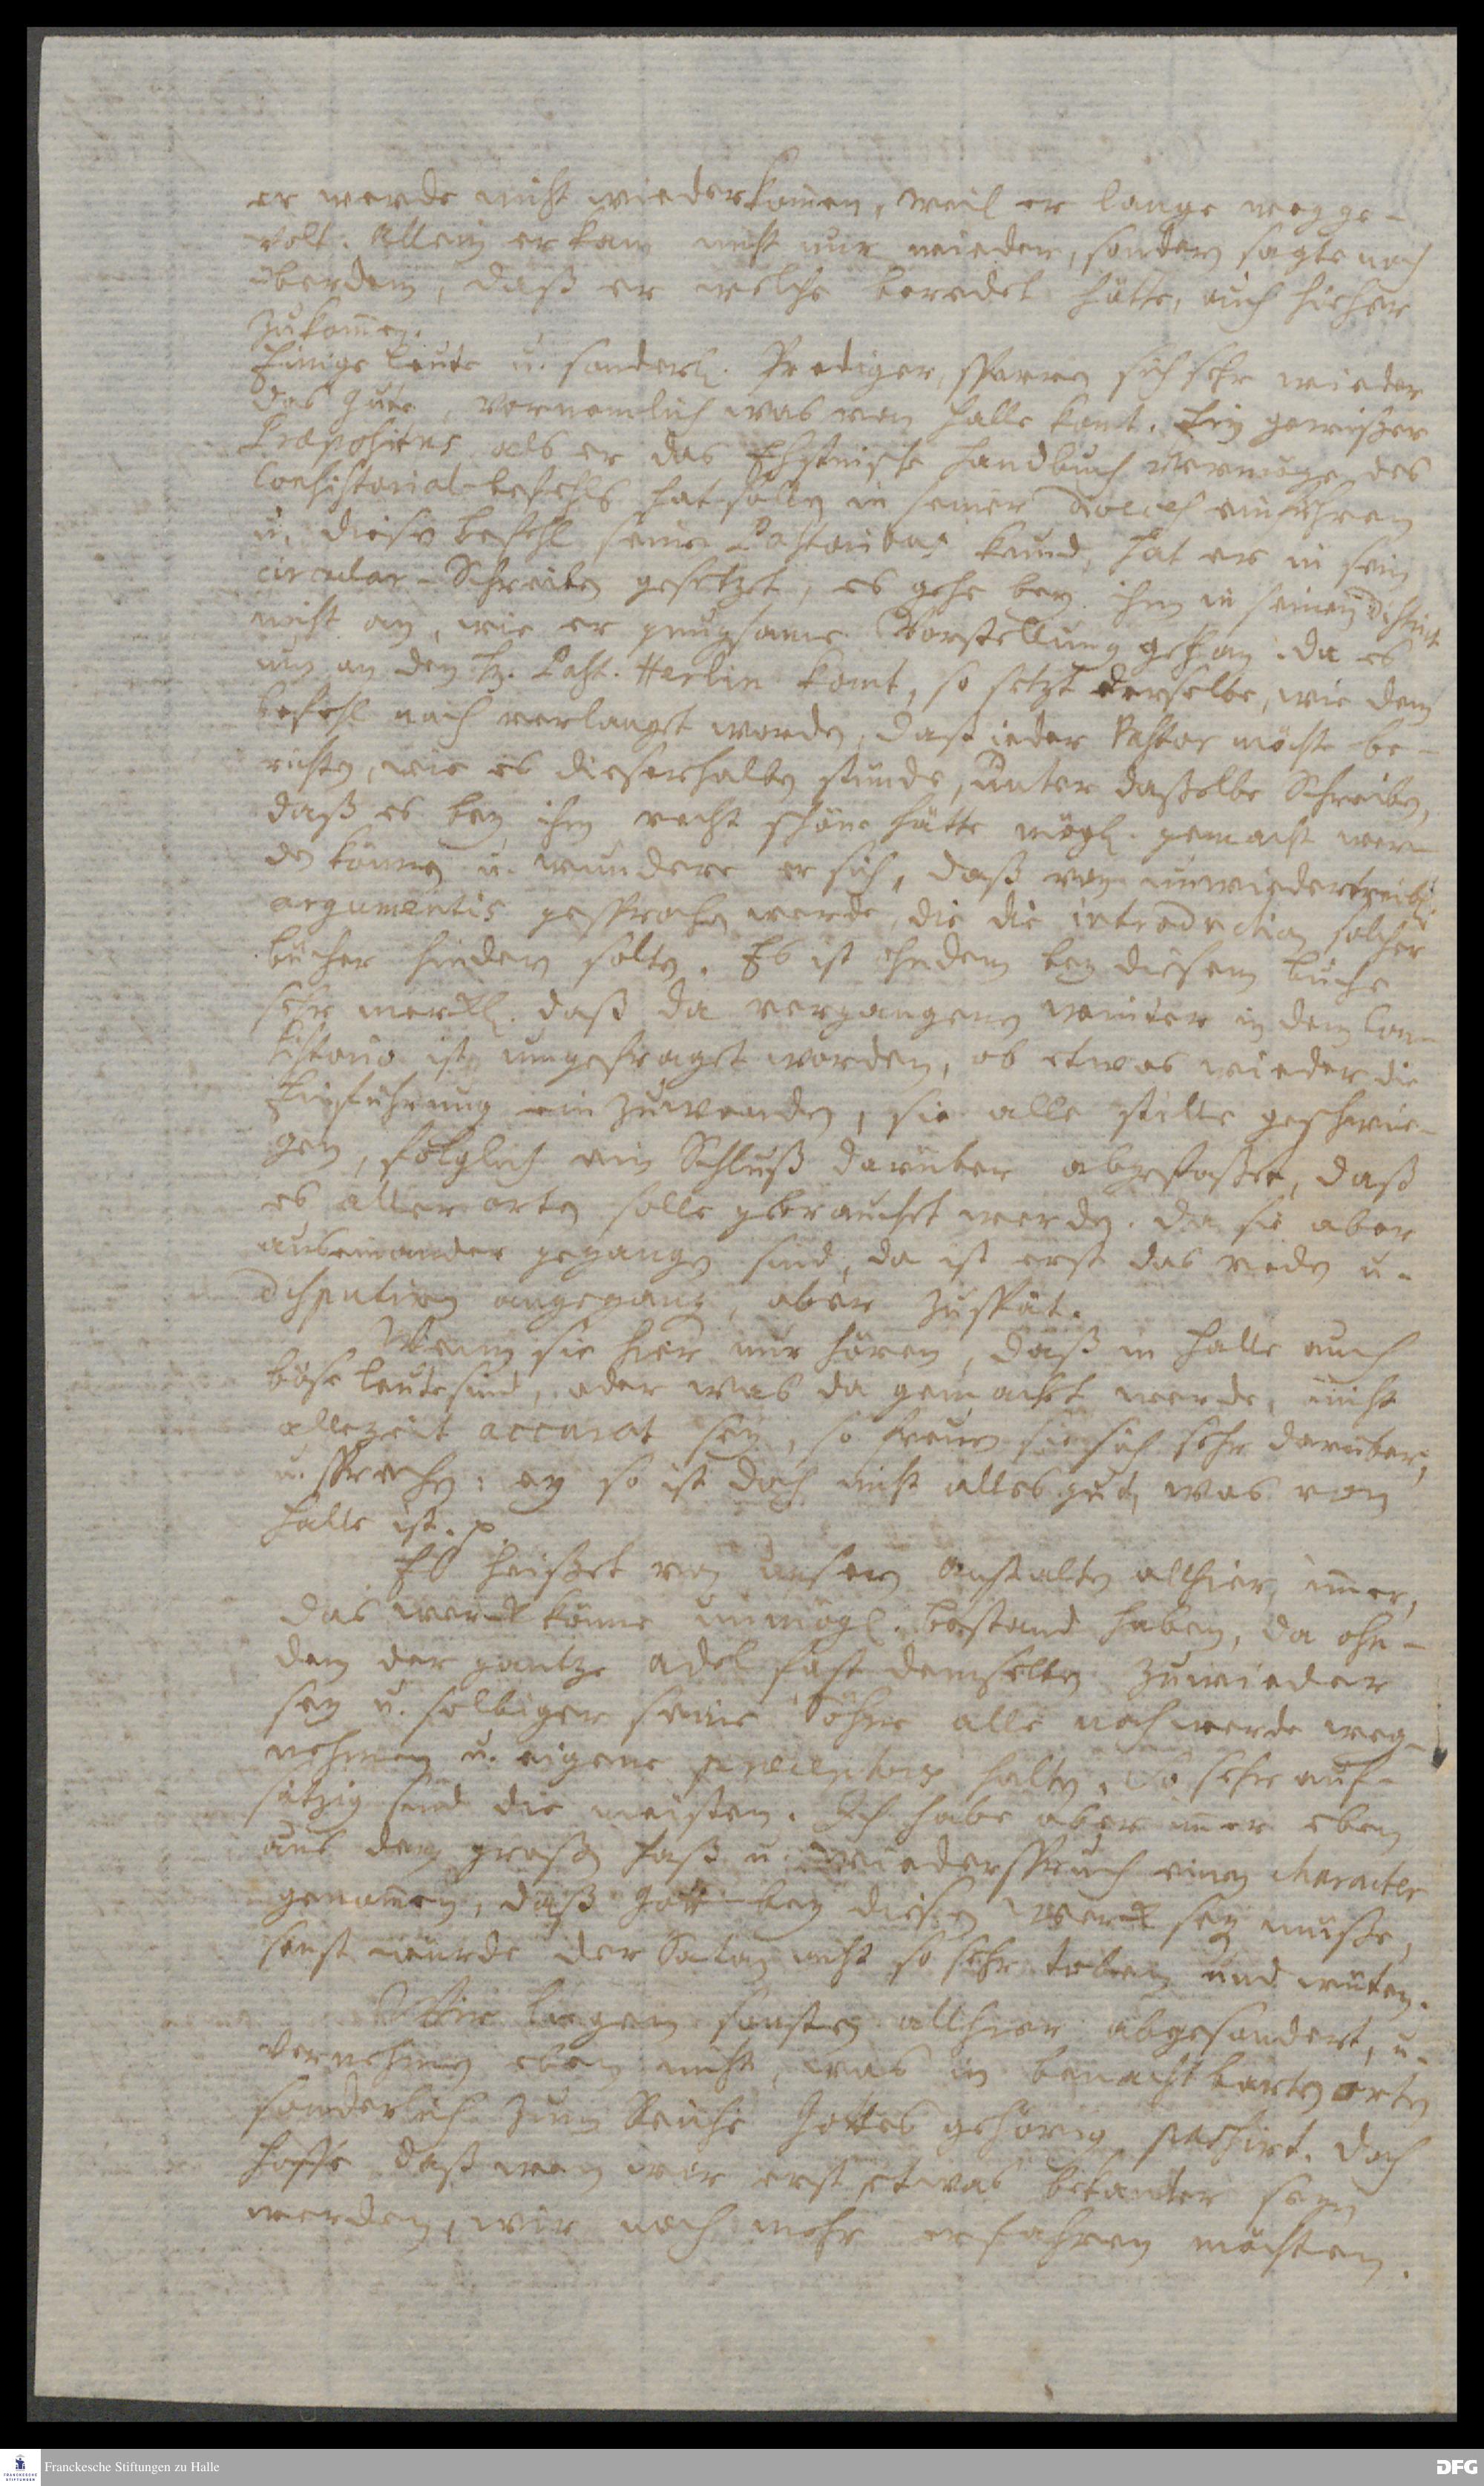 er werde nicht wiederkom̅en, weil er lange wegge-
wolt. Allein er kam nicht nur wieder, sondern sagte noch
überdem, daß er welche beredet hätte, auch hieher
zukom̅en.
Einige Leute u. sonderl. Prediger, sperren sich sehr wieder
das Gute, vornemlich was von Halle komt. Ein gewißer
Præpositus als er das Ehstnische Handbuch vermöge des
Consistorial-befehls hat sollen in seiner Dioeces einführen
u. diesen Befehl seinen Pastoribus kund, hat er in sein
circular-Schreiben gesetzet, es gehe bey ihm in seinem District
nicht an, wie er gnugsame Vorstellung gethan. Da es
nun an den H. Past. Herlin komt, so setzt derselbe, wie dem
Befehl nach verlanget worden, daß ieder Pastor möchte be-
richten, wie es dieserhalben stunde, unter daßelbe Schreiben,
daß es bey ihm recht schöne hätte mögl. gemacht wer-
den können u. wundere er sich, daß von unwiedertreibl.
argumentis gesprochen werde, die die introduction solcher
bücher hindern solten. Es ist ohndem bey diesem Buche
sehr merckl. daß da vergangenen Winter in dem Con-
sistorio ist umgefraget worden, ob etwas wieder die
Einführung einzuwenden, sie alle stille geschwie-
gen, folglich ein Schluß darüber abgefaßet, daß
es aller orten solle gebrauchet werden. Da sie aber
auseinander gegangen sind, da ist erst das reden u.
disputiren angegangen, aber zuspät.
Wenn sie hier nur hören, daß in Halle auch
böse Leute sind, oder was da gemacht werde, nicht
allezeit accurat sey, so freuen sie sich sehr darüber,
u. sprechen: ey so ist doch nicht alles gut, was von
Halle ist. p.
Es heißet von unsern Anstalten allhier, im̅er,
das werck könne unmögl. bestand haben, da ohn-
dem der gantze Adel fast demselben zuwieder
sey u. selbiger seine Söhne alle noch werde weg-
nehmen u. eigene præceptores halten. So sehr auf-
sätzig sind die meisten. Ich habe aber im̅er eben
aus dem großen Haß u. wiederspruch einen character
genom̅en, daß Gott bey diesem Werck seyn müße,
sonst würde der Satan nicht so sehr toben und wüten.
Wir liegen sonsten allhier abgesondert, u.
vernehmen eben nicht, was in benachtbarten orten
sonderlich zum Reiche Gottes gehörig passirt. Doch
hoffe daß wen wir erst etwas bekanter seyn
werden, wir noch mehr erfahren möchten.
Franckesche Stiftungen zu Halle
DFG